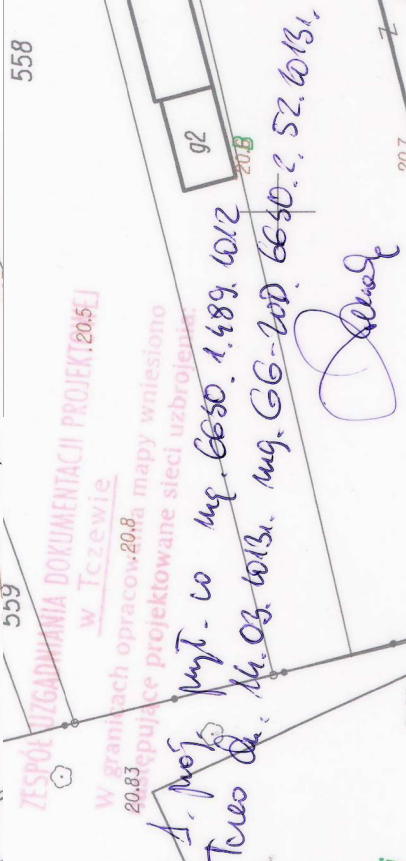 558
559
g2
20.B
20.5
20.8
20.83
20.7
ZESPÓŁ UZGADNIANIA DOKUMENTACJI PROJEKTOWEJ
w Tczewie
W granicach opracowania mapy wniesiono
następujące projektowane sieci uzbrojenia:
1. proj. mg. 6630.1.489.2012
dn. 14.03.2013r. mg. GG-ZUD.6630.2.52.2013r.